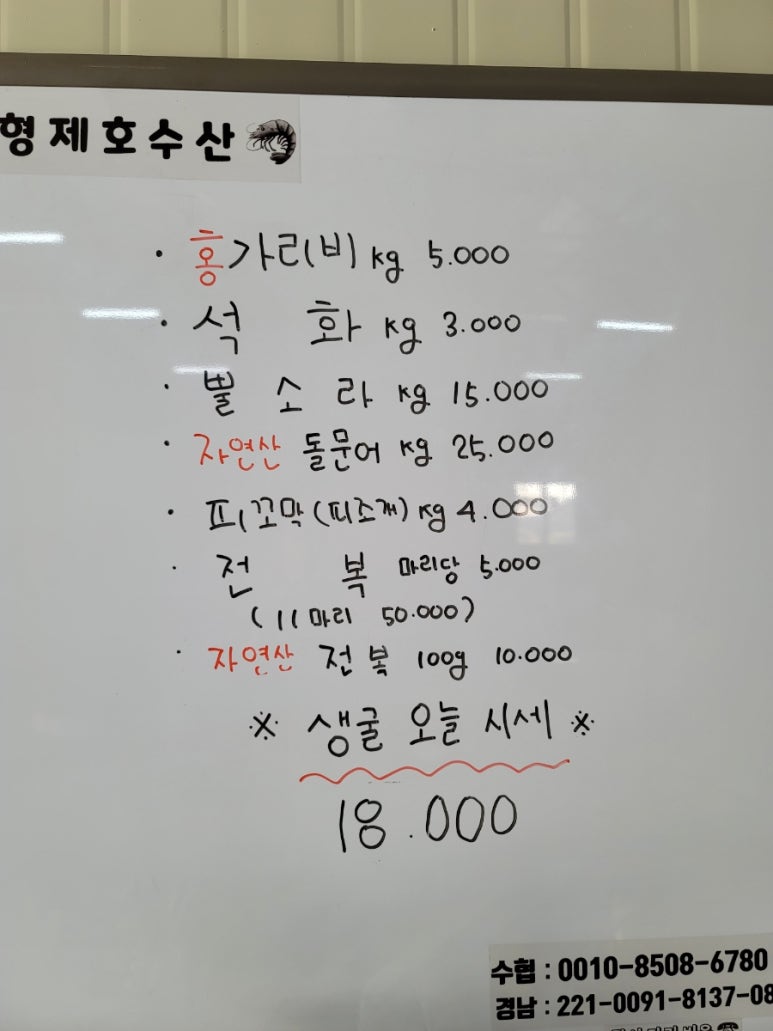 형제호수산
· 홍가리비 kg 5.000
· 석 화 kg 3.000
· 뿔 소 라 kg 15.000
· 자연산 돌문어 kg 25.000
· 피꼬막(피조개) kg 4.000
· 전 복 마리당 5.000
(11마리 50.000)
· 자연산 전복 100g 10.000
※ 생굴 오늘 시세 ※
18.000
수협 : 0010-8508-6780
경남 : 221-0091-8137-08